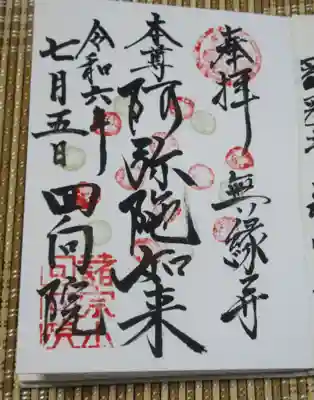 奉拝 無縁寺
本尊 阿弥陀如来
令和六年
七月五日 回向院